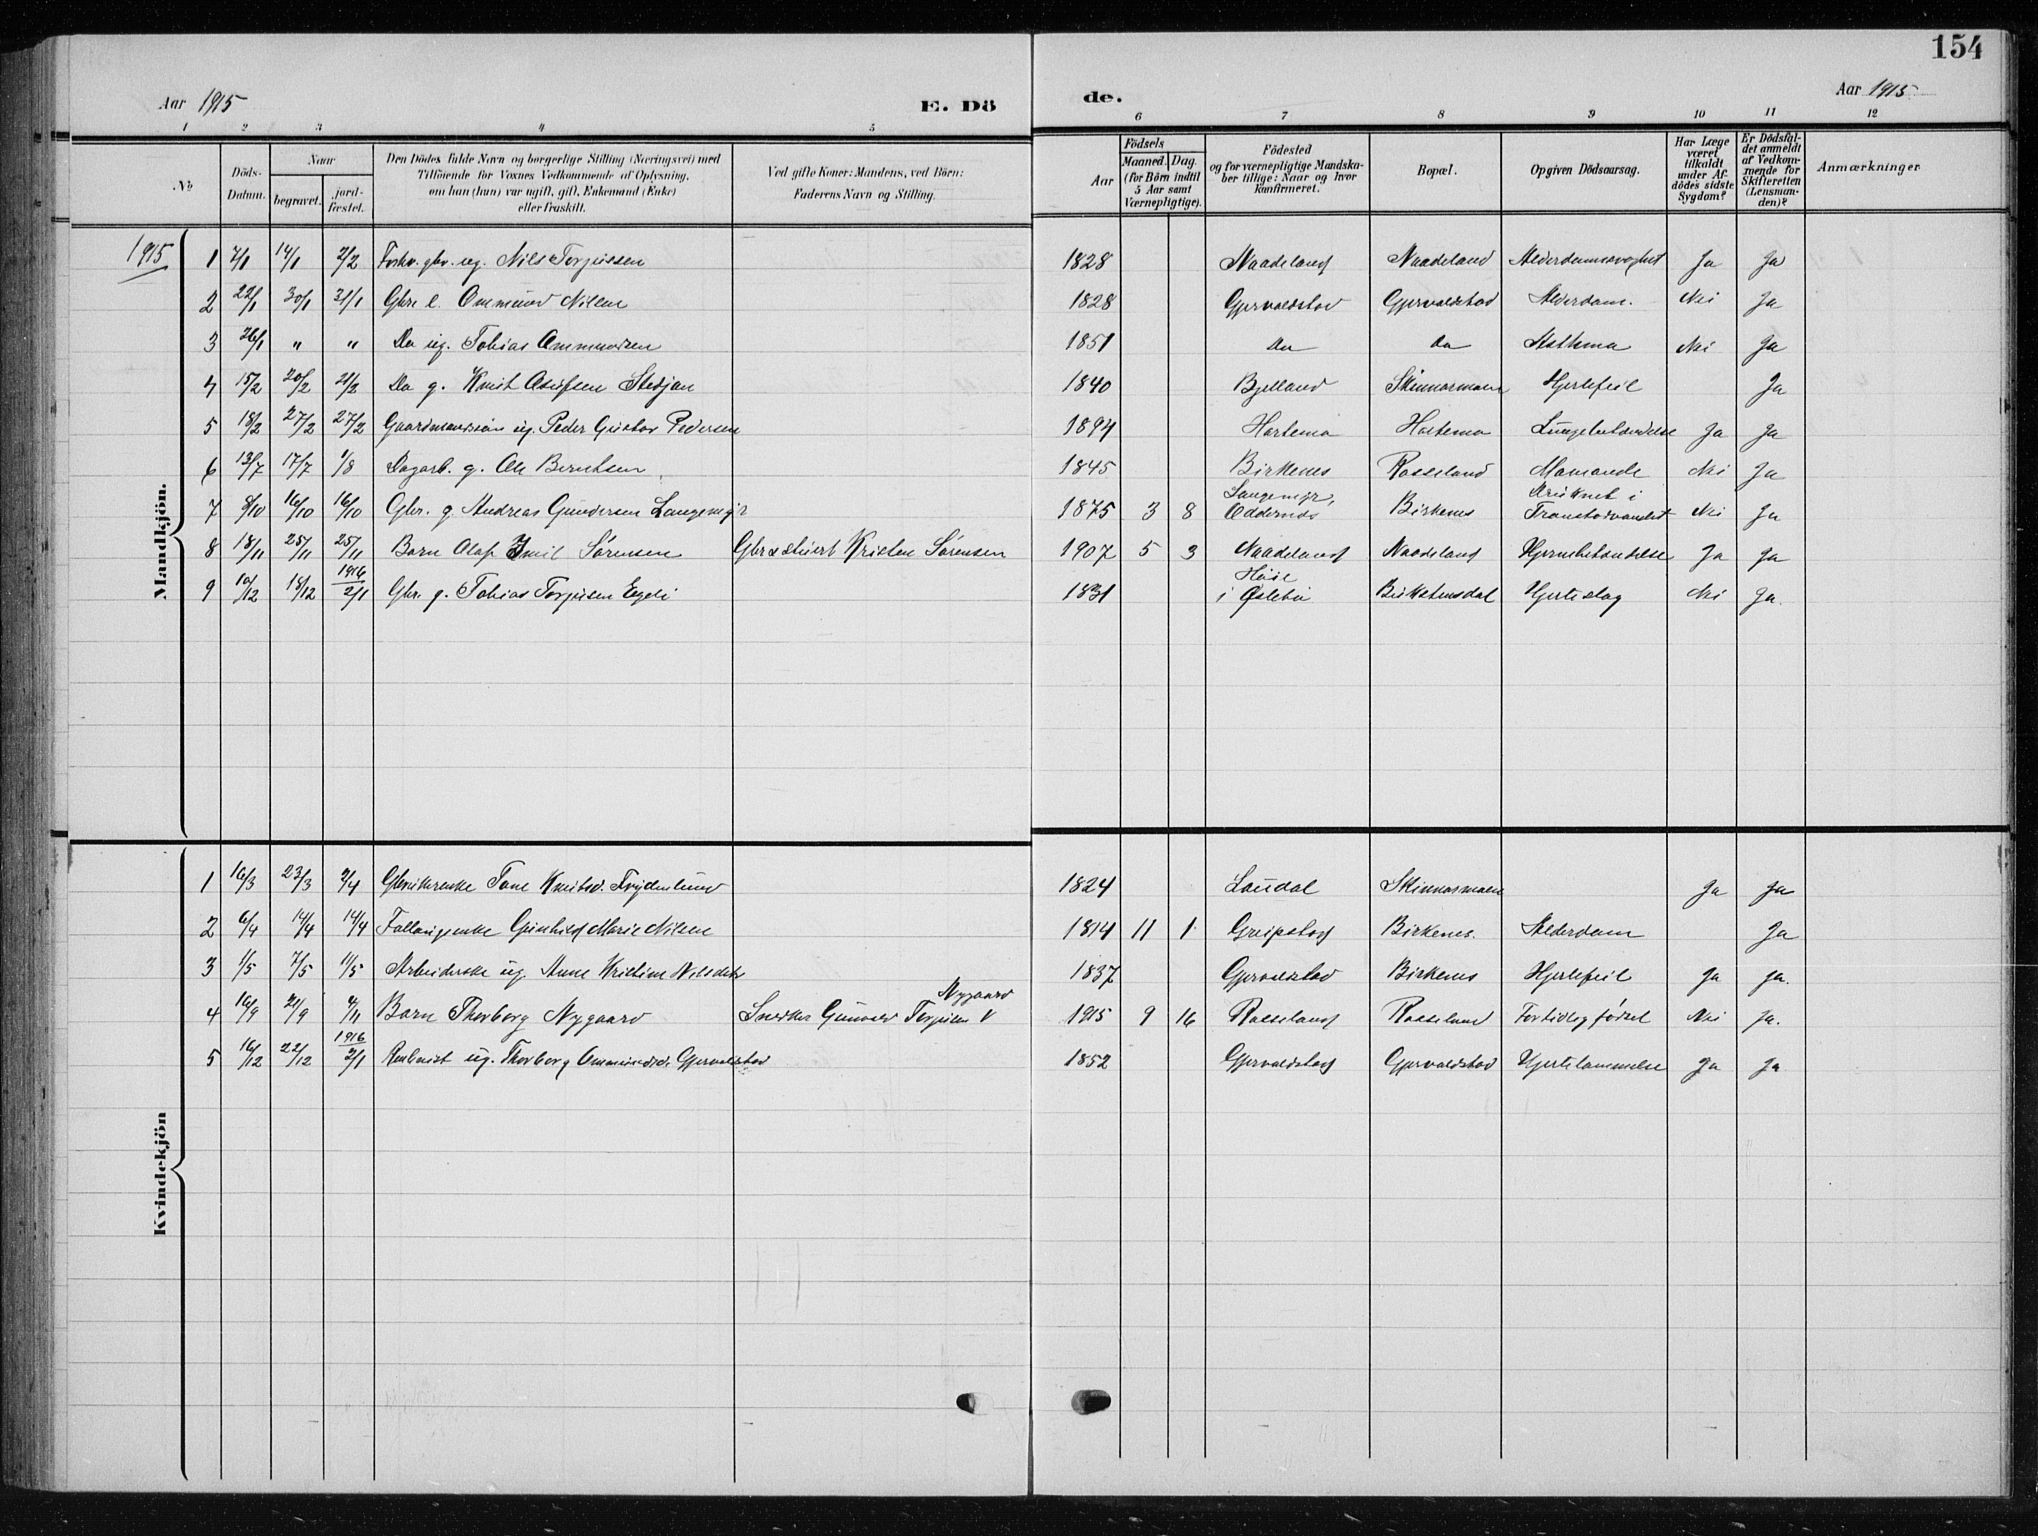 154
Aar 1915 E. Dö de. Aar 1915
1 2 3 4 5 6 7 8 9 10 11 12
No
Döds-Datum.
Naar
begravet.
jord-fæstet.
Den Dödes fulde Navn og borgerlige Stilling (Næringsvei) med
Tilföiende for Voxnes Vedkommende af Oplysning,
om han (hun) var ugift, gift, Enkemand (Enke)
eller fraskilt.
Ved gifte Koner: Mandens, ved Börn:
Faderens Navn og Stilling.
Aar
Födsels
Maaned. Dag.
(for Börn indtil
5 Aar samt
Værnepligtige).
Födested
og for værnepligtige Mandska-
ber tillige: Naar og hvor
konfirmeret.
Bopæl.
Opgiven Dödsaarsag.
Har Læge
været
tilkaldt
under Af-
dödes sidste
Sygdom?
Er Dödsfal-
det anmeldt
af Vedkom-
mende for
Skifteretten
(Lensman-
den)?
Anmærkninger
Mandkjön.
1915 1 7/1 14/1 7/2 Forhv. gbr. ug. Nils Torjussen 1828 Naadeland Naadeland Alderdomssvaghet Ja Ja
2 22/1 30/1 31/1 Gbr. e. Ommund Nilsen 1828 Gjervoldstad Gjervoldstad Alderdom. Nei Ja
3 26/1 " " Do ug. Tobias Ommundsen 1851 Do Do Asthma Nei Ja
4 15/2 20/2 21/2 Do g. Knut Stedjan 1840 Bjelland Skinnarmoen Hjertefeil Ja
5 18/2 27/2 27/2 Gaardmandssøn ug. Peder Gustav Pedersen 1894 Hortemo Hortemo Lungebetændelse Ja Ja
6 13/7 17/7 1/8 Dagarb. g. Ole Berntsen 1845 Birkenes Rosseland Nei Ja
7 8/10 16/10 16/10 Gbr. g. Andreas Gundersen Langemyr 1875 3 8 Langemyr, Oddernes Birkenes Druknet i Nei Ja
8 18/11 25/11 25/11 Barn Olaf Emil Sørensen Kristen Sørensen 1907 5 3 Naadeland Naadeland Hjernebetændelse Ja Ja
9 10/12 18/12 1916 2/1 Gbr. g. Tobias Torjusen Egeli 1831 Høie i Øslebø Birkelunsdal Hjerteslag Nei Ja.
Kvindekjön
1 16/3 23/3 2/4 Tone Knutsd. Frydenlund 1824 Laudal Skinnarmoen Ja Ja
2 6/4 14/4 14/4 Gunhild Marie Nilsen 1814 11 1 Greipstad Birkenes. Alderdom Ja
3 1/5 7/5 1/5 Arbeiderske ug. Anne Kristine Nilsdatter 1837 Gjervoldstad Birkenes Hjertefeil Ja Ja.
4 16/9 21/9 7/11 Barn Thorborg Nygaard Snedker Gunvald Torjusen Nygaard 1915 9 16 Rosseland Rosseland Fortidlig født Nei Ja.
5 16/12 22/12 1916 2/1 ug. Thorborg Ommundsd. Gjervoldstad 1852 Gjervoldstad Gjervoldstad Hjertelammelse Ja Ja